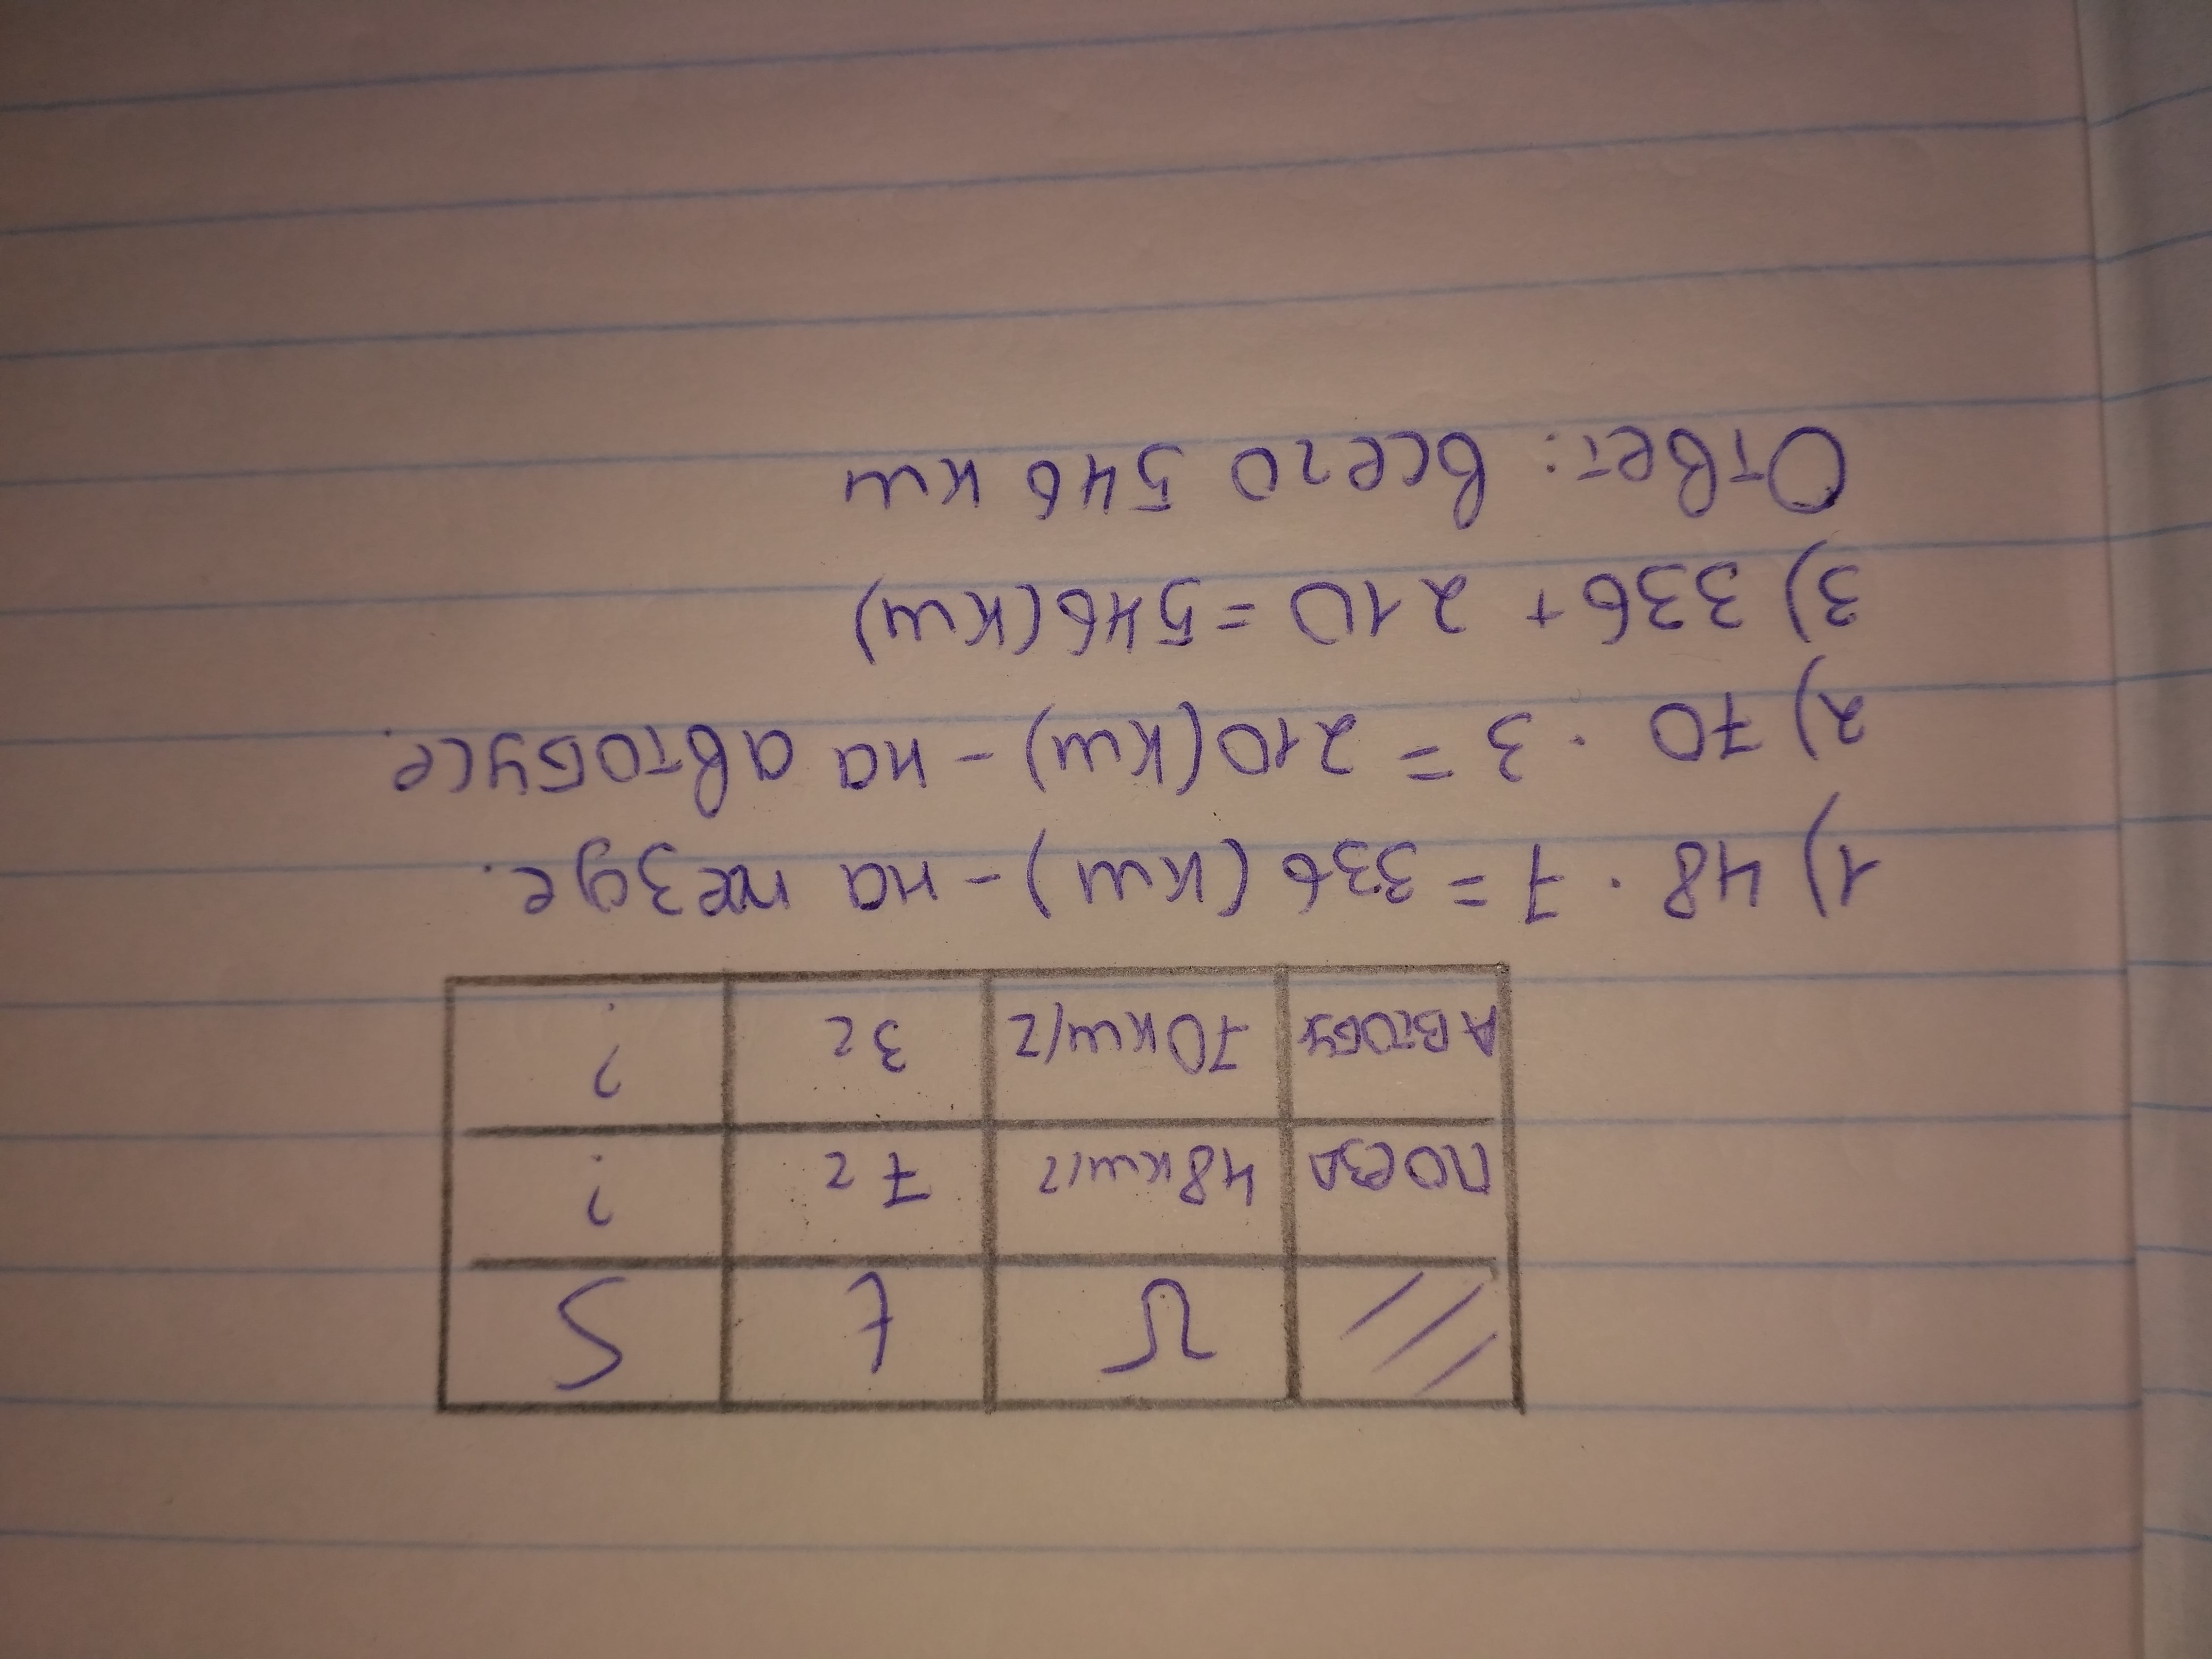 υ t S
ПОЕЗД 48км/г 7г ?
АВТОБУ 70км/г 3г ?
1) 48 · 7 = 336 (км) - на поезде.
2) 70 · 3 = 210 (км) - на автобусе.
3) 336 + 210 = 546 (км)
Ответ: всего 546 км